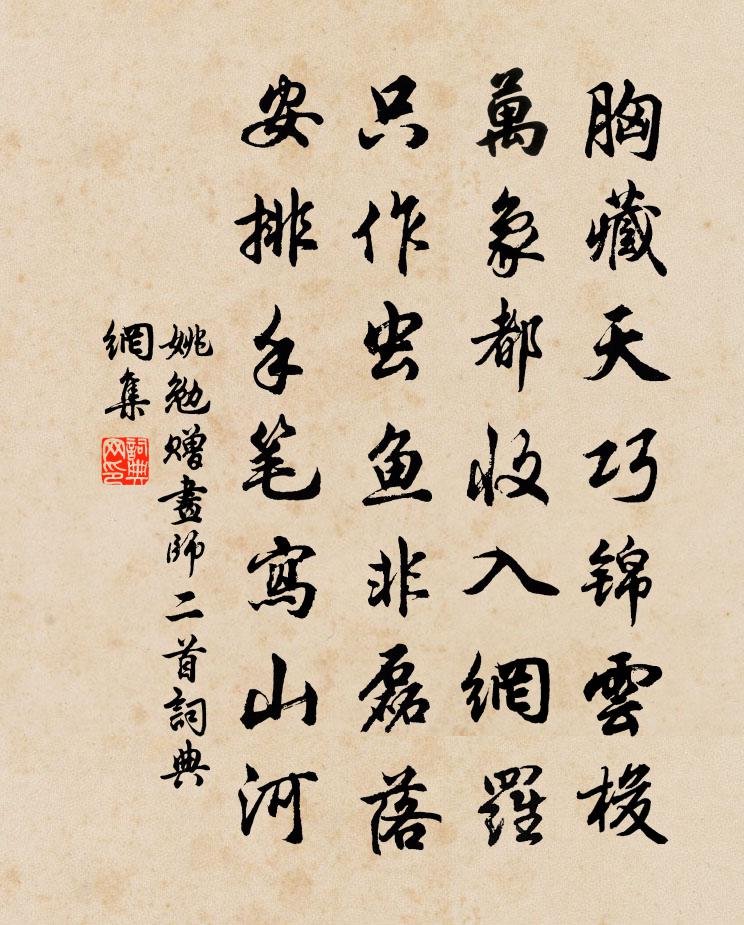 胸藏天巧锦雲梭
萬象都收入網羅
只作虫鱼非磊落
安排手笔寫山河
姚勉赠畫師二首詞典
網集
詞典
网印